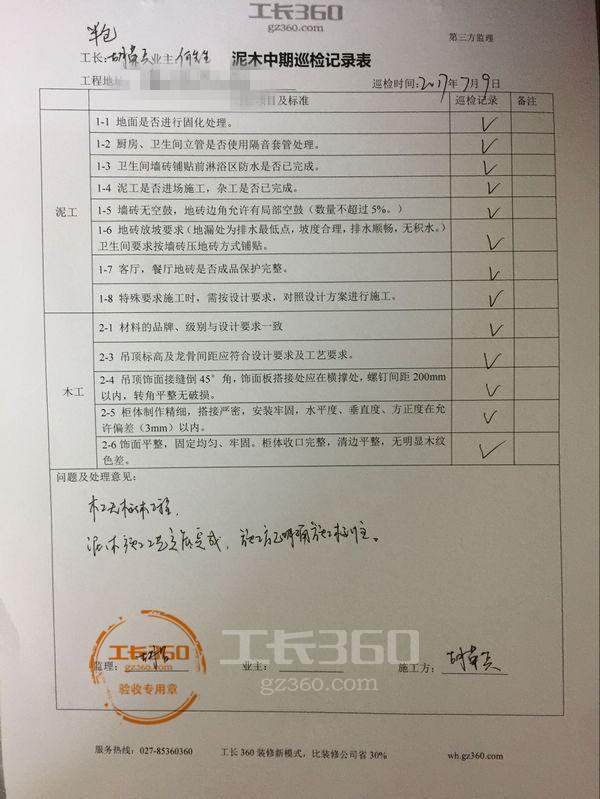 工长360
gz360.com
第三方监理
半包
工长: 业主: 何先生 泥木中期巡检记录表
工程地址 巡检时间: 2017年7月9日
项目及标准 巡检记录 备注
泥工
1-1 地面是否进行固化处理。
1-2 厨房、卫生间立管是否使用隔音套管处理。
1-3 卫生间墙砖铺贴前淋浴区防水是否已完成。
1-4 泥工是否进场施工，杂工是否已完成。
1-5 墙砖无空鼓，地砖边角允许有局部空鼓（数量不超过 5%。）
1-6 地砖放坡要求（地漏处为排水最低点，坡度合理，排水顺畅，无积水。）
卫生间要求按墙砖压地砖方式铺贴。
1-7 客厅，餐厅地砖是否成品保护完整。
1-8 特殊要求施工时，需按设计要求，对照设计方案进行施工。
木工
2-1 材料的品牌、级别与设计要求一致
2-3 吊顶标高及龙骨间距应符合设计要求及工艺要求。
2-4 吊顶饰面接缝倒 45° 角，饰面板搭接处应在横撑处，螺钉间距 200mm
以内，转角平整无破损。
2-5 柜体制作精细，搭接严密，安装牢固，水平度、垂直度、方正度在允
许偏差（3mm）以内。
2-6 饰面平整，固定均匀、牢固。柜体收口完整，清边平整，无明显木纹
色差。
问题及处理意见：
木工无柜体工程.
泥木施工已完成，施工方已明确施工标准。
工长360
gz360.com
监理: 业主: 施工方:
工长360
gz360.com
验收专用章
服务热线: 027-85360360 工长 360 装修新模式，比装修公司省 30% wh.gz360.com